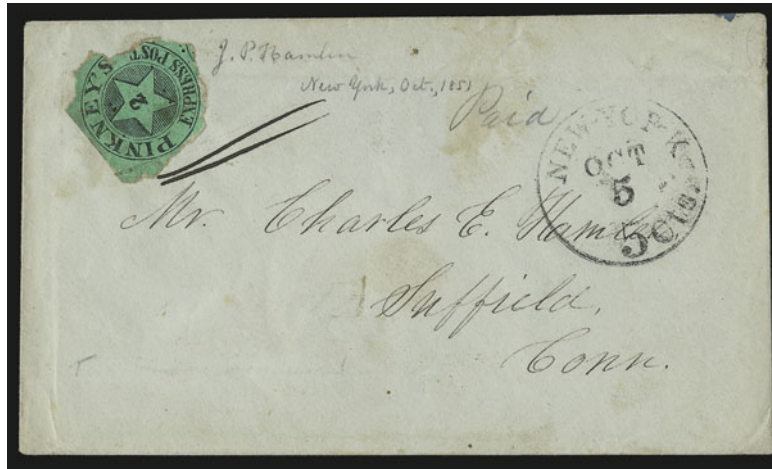 PINKNEY'S EXPRESS POST
2
J. P. Hamlin
New York, Oct., 1851
Paid
NEW-YORK
OCT
5
5 Cts.
Mr. Charles E. Hamlin
Suffield,
Conn.